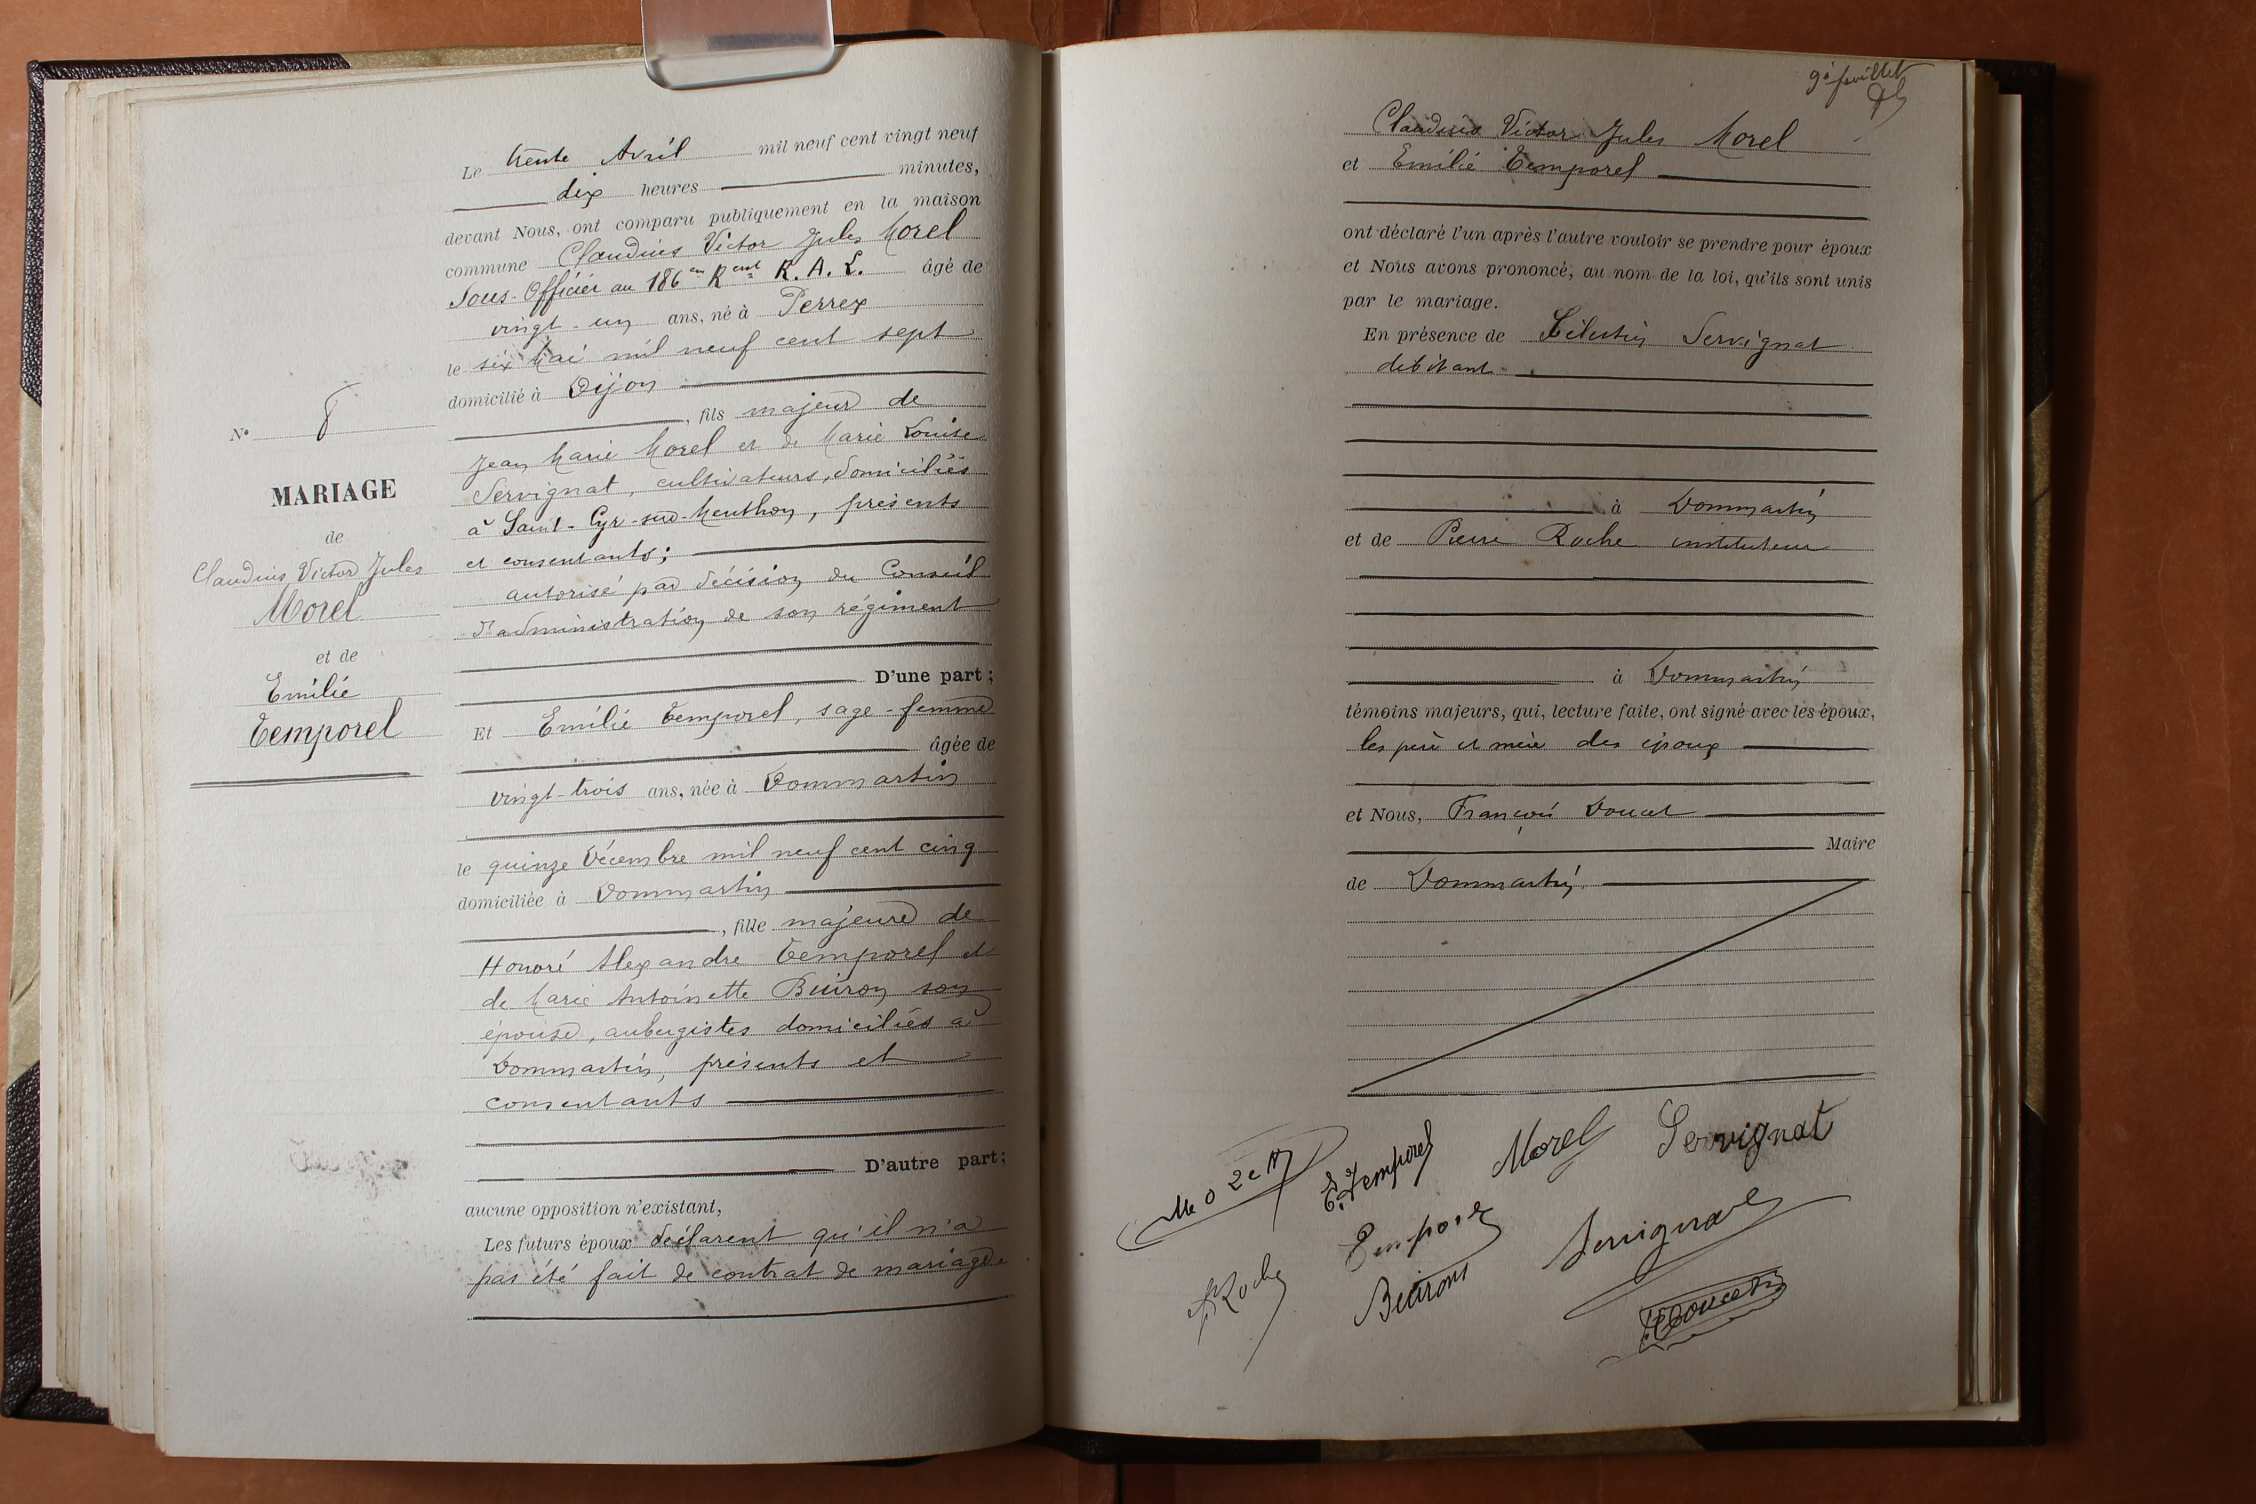 Le trente Avril mil neuf cent vingt neuf
dix heures minutes,
devant Nous, ont comparu publiquement en la maison
commune Claudius Victor Jules Morel
Sous-Officier au 186em Rent R. A. L. âgé de
vingt-un ans, né à Perrex
le six Mai mil neuf cent sept
domicilié à Dijon
, fils majeur de
Jean Marie Morel et de Marie Louise
Servignat, cultivateurs, domiciliés
à Saint-Cyr-sur-Menthon, présents
et consentants;
autorisé par décision du Conseil
d'administration de son régiment
D'une part;
Et Emilie Temporel, sage-femme
âgée de
vingt-trois ans, née à Dommartin
le quinze Décembre mil neuf cent cinq
domiciliée à Dommartin
, fille majeure de
Honoré Alexandre Temporel et
de Marie Antoinette Buiron son
épouse, aubergistes domiciliés à
Dommartin, présents et
consentants
D'autre part;
aucune opposition n'existant,
Les futurs époux déclarent qu'il n'a
pas été fait de contrat de mariage.
N° 8
MARIAGE
de
Claudius Victor Jules
Morel
et de
Emilie
Temporel
9è feuillet
Claudius Victor Jules Morel
et Emilie Temporel
ont déclaré l'un après l'autre vouloir se prendre pour époux
et Nous avons prononcé, au nom de la loi, qu'ils sont unis
par le mariage.
En présence de Célestin Servignat
débitant
à Dommartin
et de Pierre Roche instituteur
à Dommartin
témoins majeurs, qui, lecture faite, ont signé avec les époux,
les père et mère des époux
et Nous, François Doucet
Maire
de Dommartin
E. Temporel
Morel
Servignat
Temporel
Servignat
Roche
Buiron
Doucet